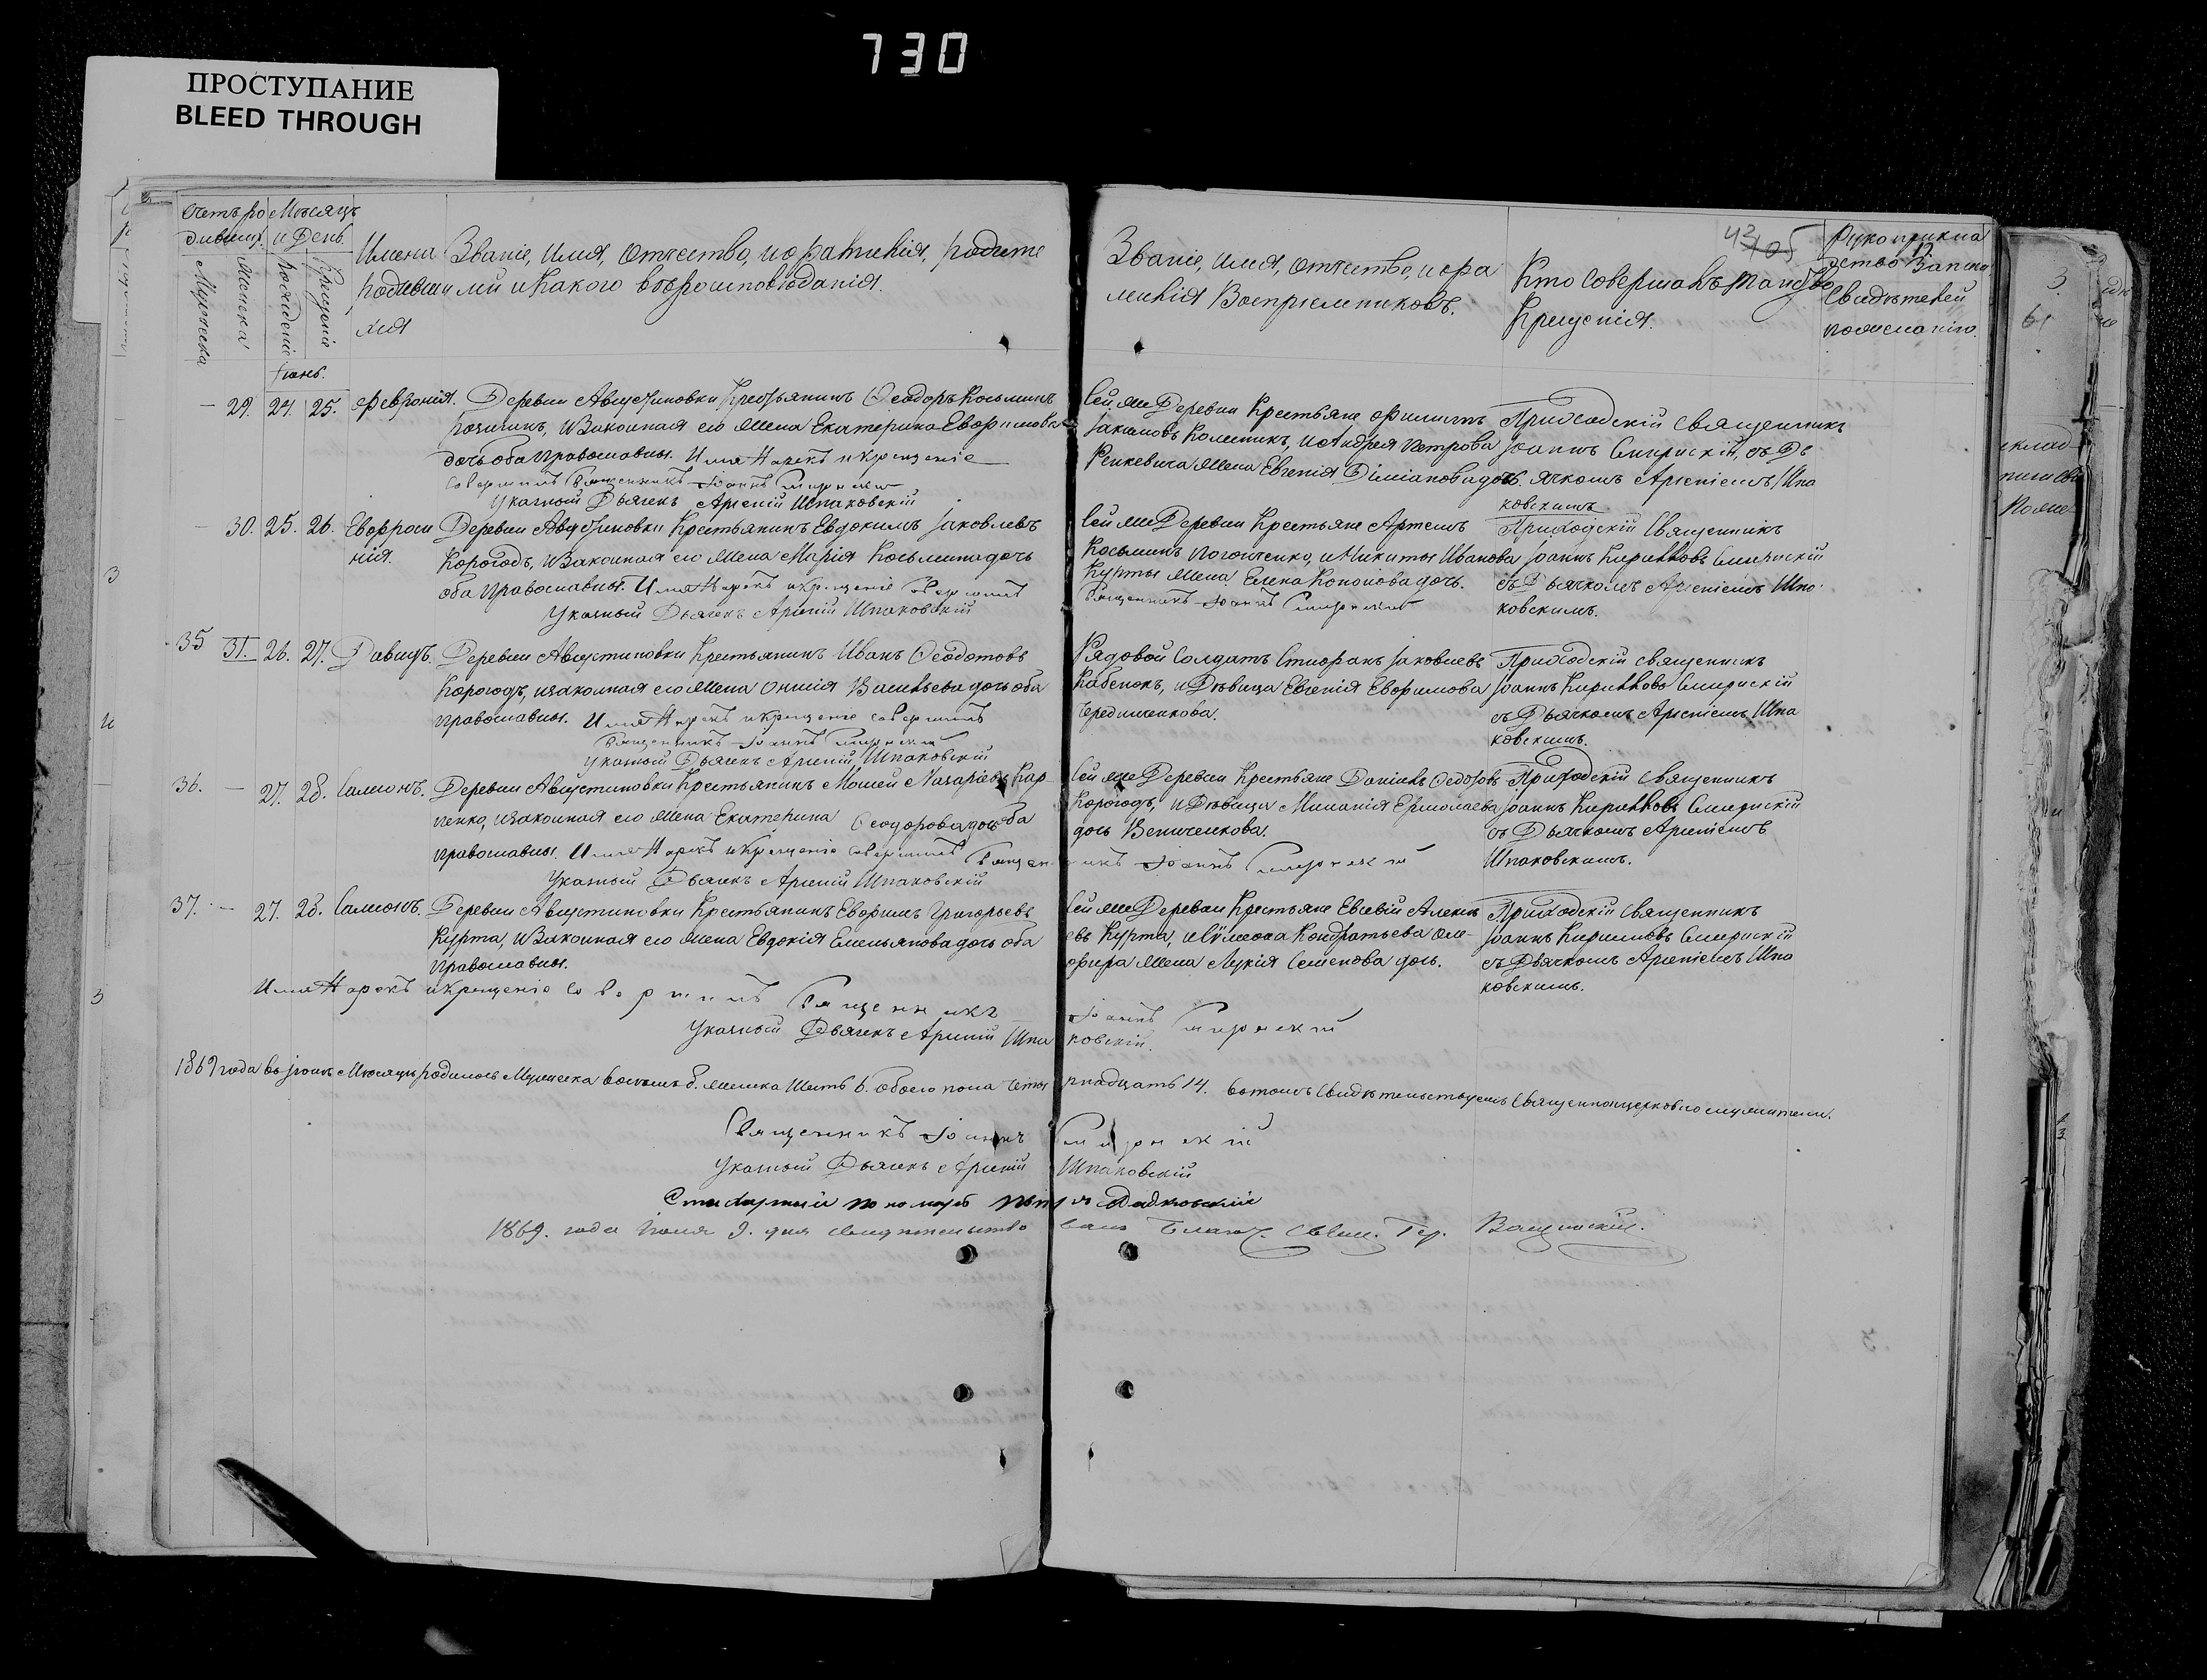 730
ПРОСТУПАНИЕ
BLEED THROUGH
Счетъ ро Мѣсяцъ
дивших. и День.
Мужеска
Женска
Рожденія
Крещенія
Имена Званіе, Имя, Отчество, и фамилія, родите
родивши лей и Какого вѣроисповѣданія.
хся
Іюнь.
Званіе, имя, отчество, и фа
милія Воспріемниковъ.
Кто Совершалъ таинство
Крещенія.
42
105
12
Рукоприкла
дство Записи
Свидѣтелей
пожеланію.
29. 24. 25. Февронія. Деревни Августиновки Крестьянинъ Ѳеодоръ Косьминъ
и Законная его жена Екатерина Евфимова
дочь оба православны. Имя Нарекъ и крещеніе
Совершилъ Священникъ Іоаннъ Смирнскій
Указный Дьячекъ Арсеній Шпаковскій
Сей же Деревни Крестьяне Филиппъ
Іакимовъ Колесникъ, и Андрея Петрова
Ренкевича жена Евгенія Діміановадочь.
Приходскій Священникъ
Іоаннъ Смирнскій, съ Дь
ячкомъ Арсеніемъ Шпа
ковскимъ
30. 25. 26. Евфроси Деревни Августиновки Крестьянинъ Евдокимъ Іаковлевъ
нія. Корогодъ, и Законная его жена Марія Косьминадочь
оба православны. Имя Нарекъ и крещеніе Совершилъ
Указный Дьячекъ Арсеній Шпаковскій
Сей же Деревни Крестьяне Артемъ
Косьминъ Логвиченко, и Никиты Иванова
Курты жена Елена Кононова дочь.
Священникъ Іоаннъ Смирнскій
Приходскій Священникъ
Іоаннъ Кирилловъ Смирнскій
съ Дьячкомъ Арсеніемъ Шпа
ковскимъ.
35 31. 26. 27. Давидъ. Деревни Августиновки Крестьянинъ Иванъ Ѳеодотовъ
Корогодъ, и законная его жена Онисія Васильева дочь оба
православны. Имя Нарекъ и крещеніе совершилъ
Священникъ Іоаннъ Смирнскій
Указный Дьячекъ Арсеній Шпаковскій
Рядовой Солдатъ Стефанъ Іаковлевъ
Кабенокъ, и Дѣвица Евгенія Евфимова
Чередниченкова.
Приходскій священникъ
Іоаннъ Кирилловъ Смирнскій
съ Дьячкомъ Арсеніемъ Шпа
ковскимъ.
36. 27. 28. Сампсонъ. Деревни Августиновки Крестьянинъ Моисей Назаріевъ Кар
пенко, и законная его жена Екатерина Ѳеодоровадочь оба
православны. Имя Нарекъ и крещеніе совершилъ Священ
Указный Дьячекъ Арсеній Шпаковскій
Сей же Деревни Крестьяне Даніилъ Ѳедотовъ
Корогодъ, и Дѣвица Миланія Ермолаева
дочь Величенкова.
никъ Іоаннъ Смирнскій
Приходскій Священникъ
Іоаннъ Кирилловъ Смирнскій
съ Дьячкомъ Арсеніемъ
Шпаковскимъ.
37. 27. 28. Сампсонъ. Деревни Августиновки Крестьянинъ Евфимъ Григорьевъ
Курта, и Законная его жена Евдокія Емельяновадочь оба
православны.
Имя Нарекъ и крещеніе Совершилъ Священникъ
Указный Дьячекъ Арсеній Шпа
Сей же Деревни Крестьяне Евсевій Алексѣ
евъ Курта, и Сѵмеона Кондратьева Оле-
фира жена Лукія Семенова дочь.
Іоаннъ Смирнскій
ковскій.
Приходскій Священникъ
Іоаннъ Кирилловъ Смирнскій
съ Дьячкомъ Арсеніемъ Шпа
ковскимъ.
1869 года въ Іюнѣ Мѣсяцѣ родилось Мужеска восемь 8. женска Шесть 6. обоего пола четы рнадцать 14. въ томъ Свидѣтельствуемъ Священноцерковнослужители.
Священникъ Іоаннъ Смирнскій
Указный Дьячекъ Арсеній Шпаковскій
1869. года Іюля 9. дня свидѣтельство валъ Благоч. Свящ.